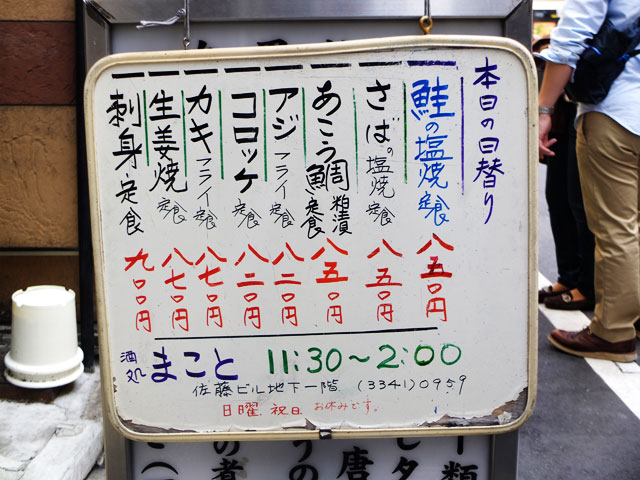 本日の日替り
鮭の塩焼定食 八五〇円
さばの塩焼定食 八五〇円
あこう鯛粕漬定食 八五〇円
アジフライ定食 八二〇円
コロッケ定食 八二〇円
カキフライ定食 八七〇円
生姜焼定食 八七〇円
刺身定食 九〇〇円
酒処 まこと 11:30～2:00
佐藤ビル地下一階 (3341)0959
日曜.祝日.お休みです。